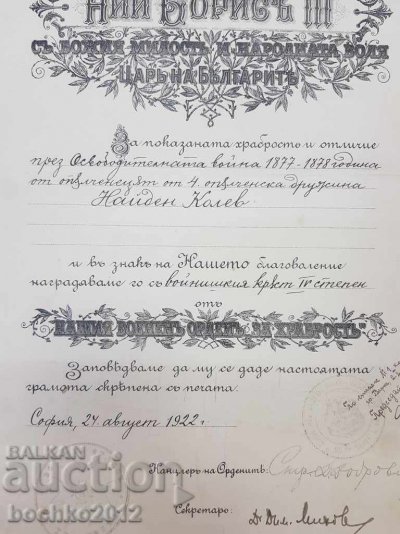 НИЙ БОРИСЪ III
СЪ БОЖИЯ МИЛОСТЬ И НАРОДНАТА ВОЛЯ
ЦАРЬ НА БЪЛГАРИТѢ
За показаната храбрость и отличие
през Освободителната война 1877-1878 година
от опълченецът от 4. опълченска дружина
Найден Колев
и въ знакъ на Нашето благоволение
наградяваме го съ войнишкия кръст IV степен
отъ
НАШИЯ ВОЕНЕНЪ ОРДЕНЪ "ЗА ХРАБРОСТЬ"
Заповѣдваме да му се даде настоящата
грамота скрѣпена съ печата.
София, 24 август 1922 г.
Канцлеръ на Орденитѣ:
Секретарь:
BALKAN
auction
bochko2012